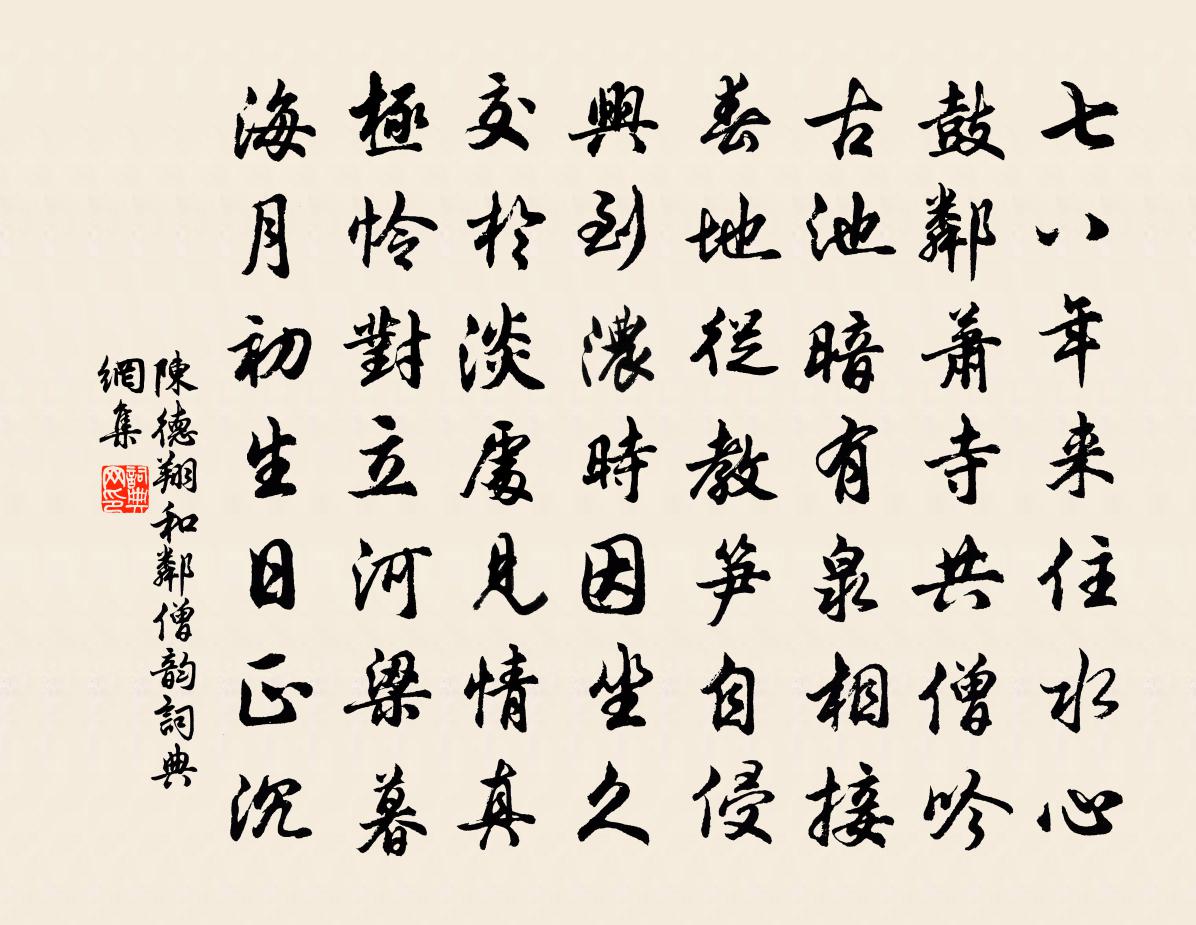 七八年来住水心
鼓鄰蕭寺共僧吟
古池暗有泉相接
春地從教笋自侵
興到濃時因坐久
交於淡處見情真
極怜對立河梁暮
海月初生日正沉
陳德翔和鄰僧韵詞典
網集
詞典
网印